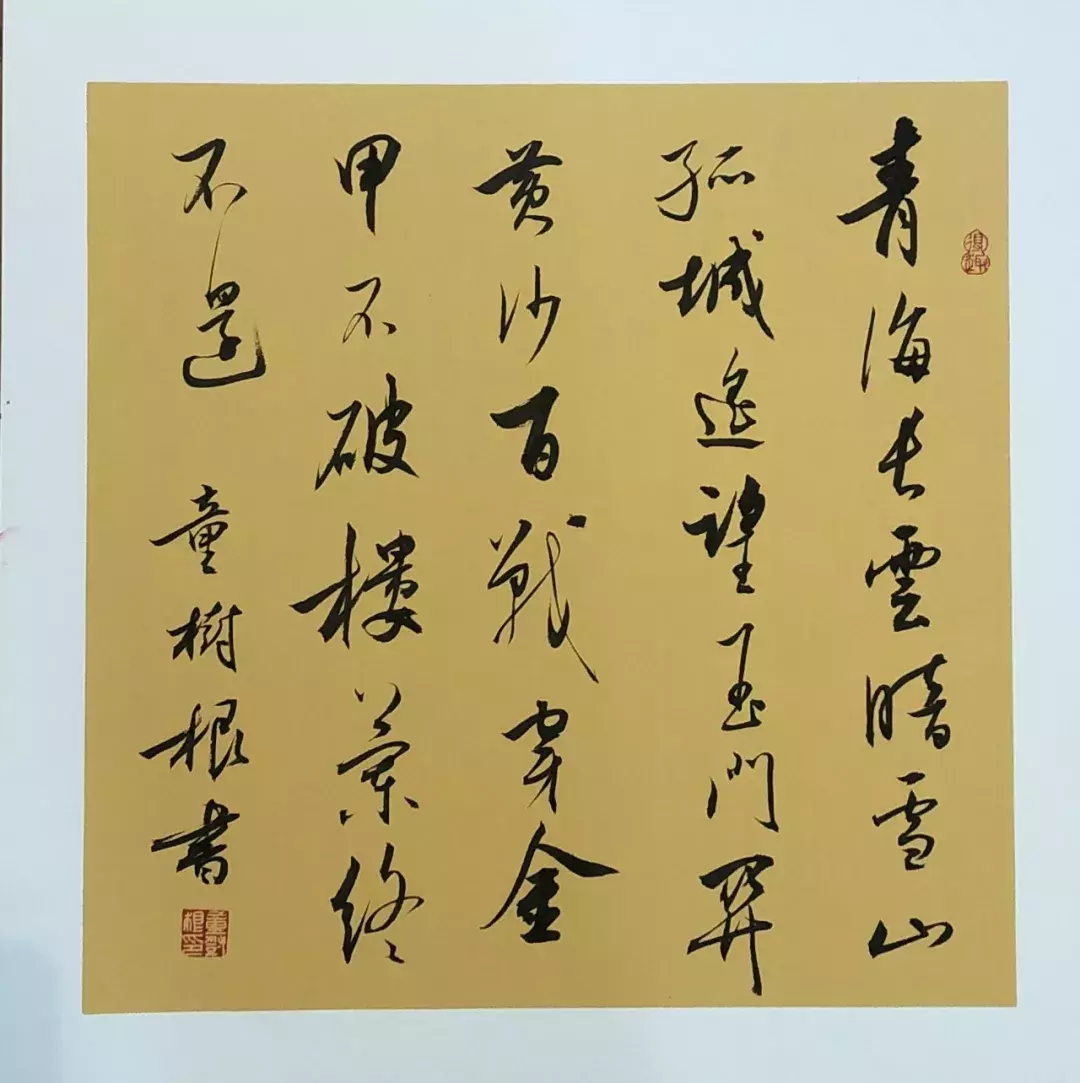 青海長雲暗雪山
孤城遙望玉門關
黄沙百戰穿金
甲不破樓蘭終
不還
童樹根書
童樹根印